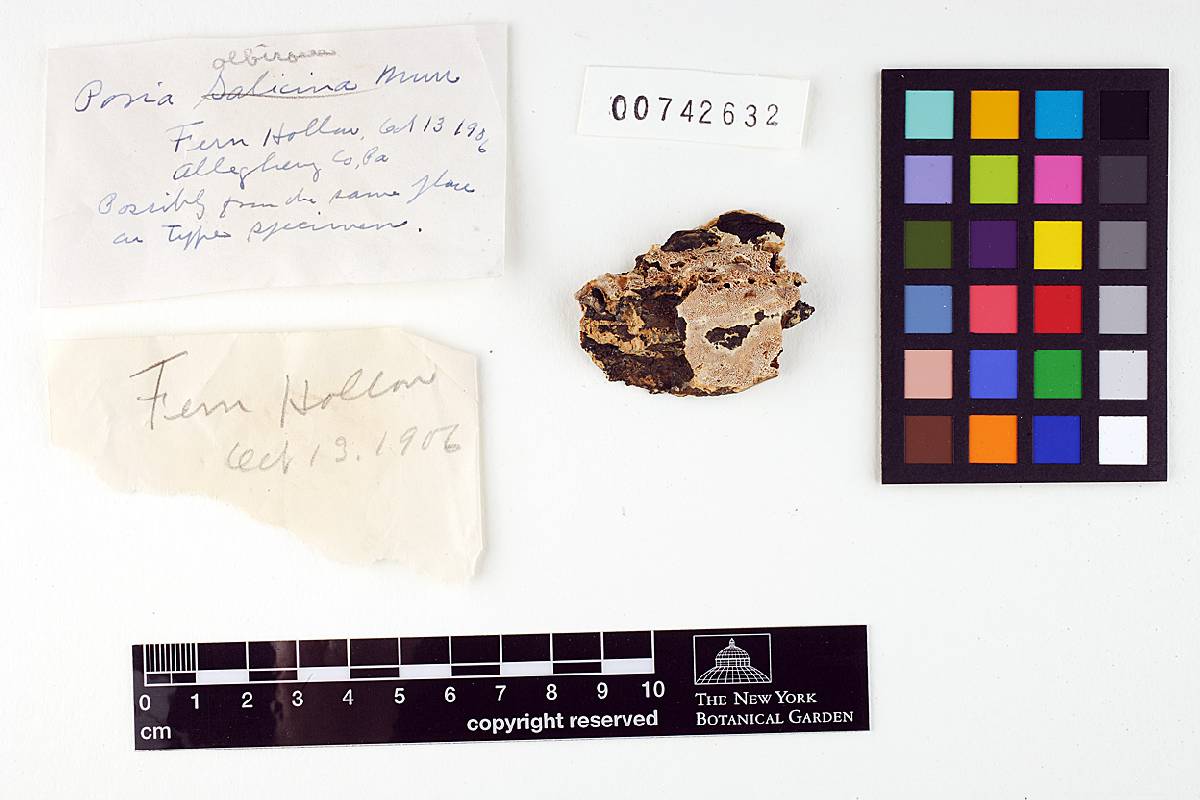 Poria Salicina Murr
Fern Hollow, Oct 13 1906
Allegheny Co, Pa
Possibly from the same place
as Type specimen.
Fern Hollow
Oct 13. 1906
00742632
0 1 2 3 4 5 6 7 8 9 10
cm
copyright reserved
THE NEW YORK
BOTANICAL GARDEN